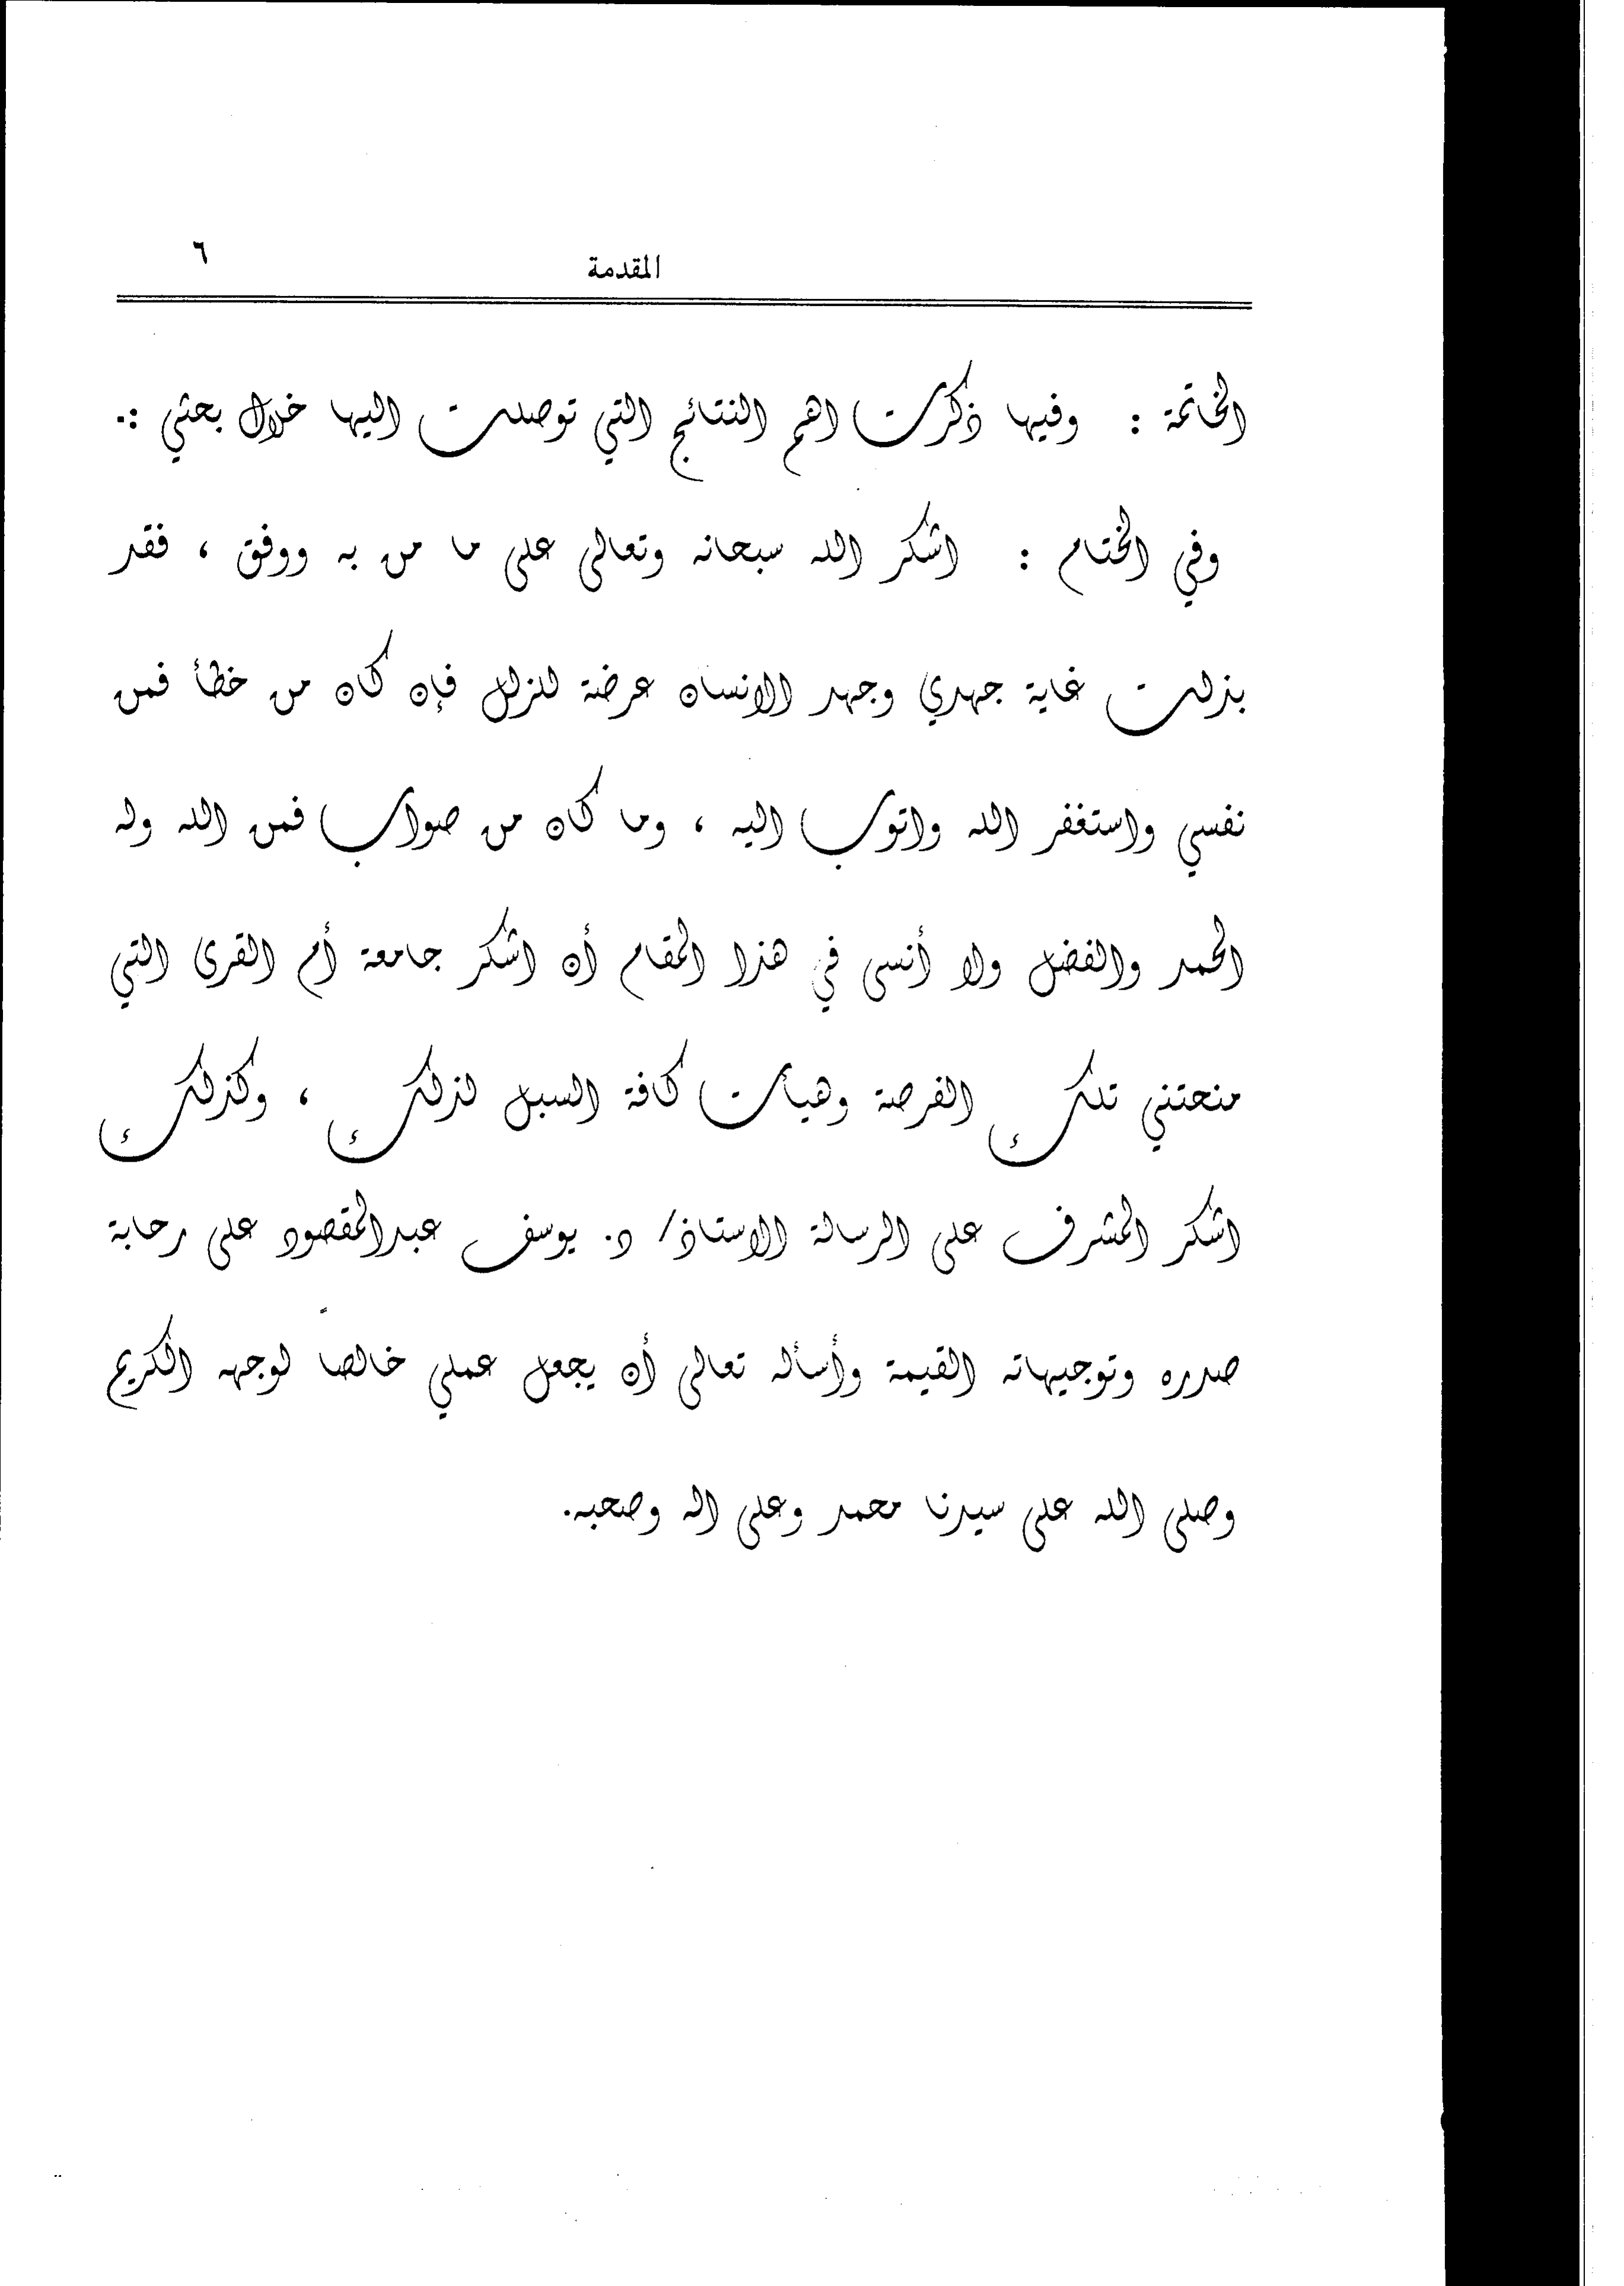 المقدمة ٦
الخاتمة : وفيها ذكرت اهم النتائج التي توصلت اليها خلال بحثي :.
وفي الختام : اشكر الله سبحانه وتعالى على ما من به ووفق ، فقد
بذلت غاية جهدي وجهد الانسان عرضة للزلل فإن كان من خطأ فمن
نفسي واستغفر الله واتوب اليه ، وما كان من صواب فمن الله وله
الحمد والفضل ولا أنسى في هذا المقام أن اشكر جامعة أم القرى التي
منحتني تلك الفرصة وهيأت كافة السبل لذلك ، وكذلك
اشكر المشرف على الرسالة الاستاذ/ د. يوسف عبدالمقصود على رحابة
صدره وتوجيهاته القيمة وأسأله تعالى أن يجعل عملي خالصاً لوجهه الكريم
وصلى الله على سيدنا محمد وعلى اله وصحبه.